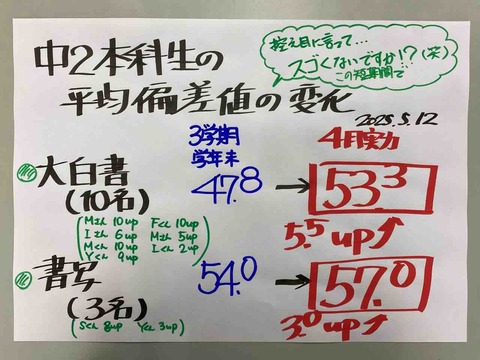 中2本科生の
平均偏差値の変化
控え目に言って…
スゴくないですか!?(笑)
この短期間で
2025.5.12
3学期
学年末
4月実力
大白書
(10名)
47.8 → 53.3
5.5 up
Mさん 10up Fくん 10up
Iさん 6up Mさん 5up
Mくん 10up Iくん 2up
Yくん 9up
書写
(3名)
54.0 → 57.0
3.0 up
Sくん 8up Yくん 3up